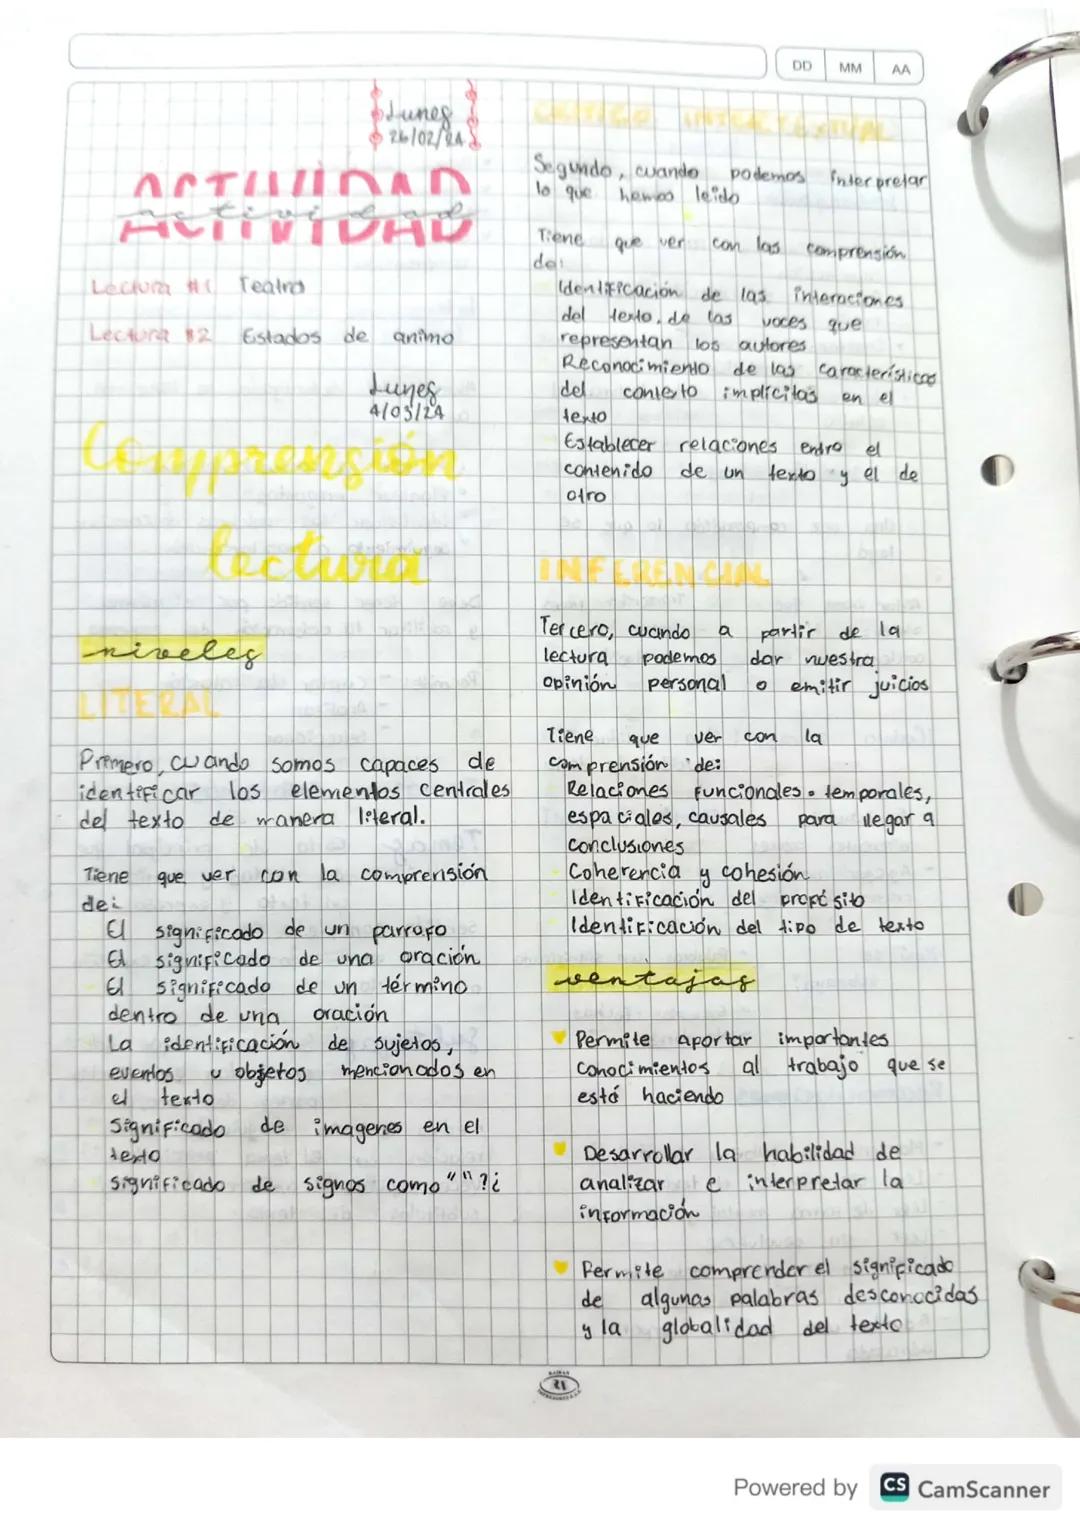 DD MM AA
Lunes
26/02/24
ACTIVIDAD
actividad
Lectura #1 Teatro
Lectura #2 Estados de animo
Lunes
4/03/24
Comprensión
lectura
niveles
LITERAL
Primero, cuando somos capaces de
identificar los elementos centrales
del texto de manera literal.
Tiene que ver con la comprensión
de:
El significado de un parrafo
El significado de una oración
El significado de un término
dentro de una oración
La identificación de sujetos,
eventos u objetos mencionados en
el texto
Significado de imagenes en el
texto
significado de signos como " " ? ¿
CRITICO INTERTEXTUAL
Segundo, cuando podemos interpretar
lo que hemos leido
Tiene que ver con las comprensión
de:
Identificación de las interaciones
del texto, de las voces que
representan los autores
Reconocimiento de las características
del contexto implícitas en el
texto
Establecer relaciones entre el
contenido de un texto y el de
otro
INFERENCIAL
Tercero, cuando a partir de la
lectura podemos dar nuestra
opinión personal o emitir juicios
Tiene que ver con la
comprensión de:
Relaciones funcionales. temporales,
espaciales, causales para llegar a
conclusiones
Coherencia y cohesión
Identificación del propósito
Identificación del tipo de texto
ventajas
Permite aportar importantes
conocimientos al trabajo que se
está haciendo
Desarrollar la habilidad de
analizar e interpretar la
información
Permite comprender el significado
de algunas palabras desconocidas
y la globalidad del texto
Powered by CS CamScanner